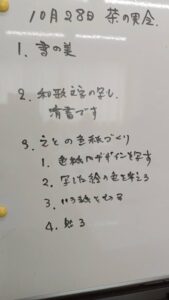 10月28日 茶の実会.
1. 書の美
2. 和歌 の写し
清書です
3. えとの色紙づくり
1. 色紙にデザインを写す
2. 写した絵の色を考える
3. 紙を
4. 貼る